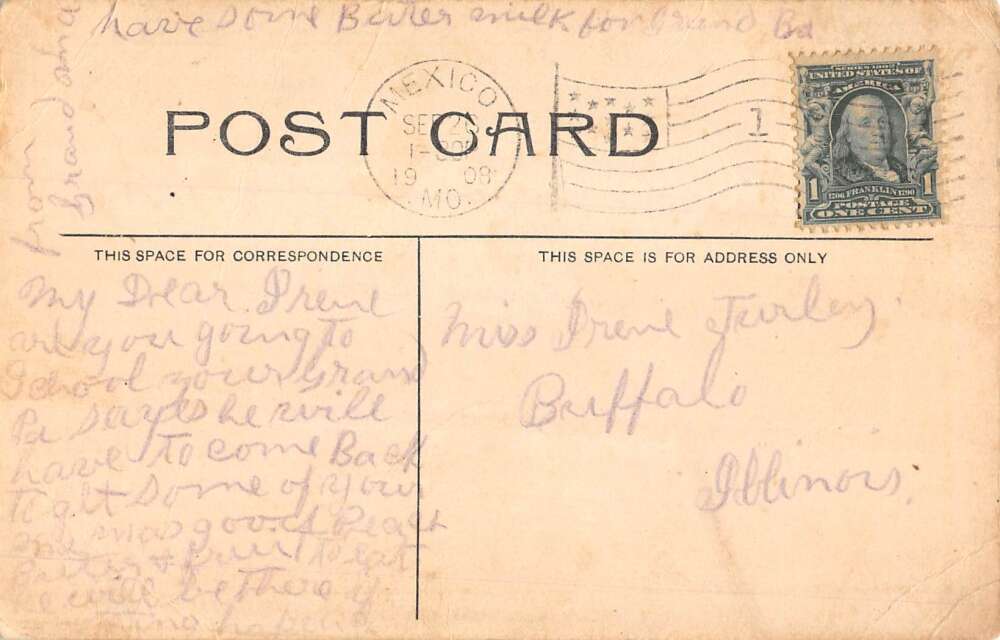 have some Butter milk for Grand Pa
from Grandma
POST CARD
MEXICO
SEP 26
1-
1908
MO.
1
SERIES 1902
UNITED STATES OF
AMERICA
1 1706 FRANKLIN 1790 1
POSTAGE
ONE CENT
THIS SPACE FOR CORRESPONDENCE
THIS SPACE IS FOR ADDRESS ONLY
My Dear Irene
are you going to
School your Grand
Pa says he will
have to come Back
to get some of your
mas good Peach
Butter & fruit to eat
he will be there
Miss Irene Turley
Buffalo
Illinois.